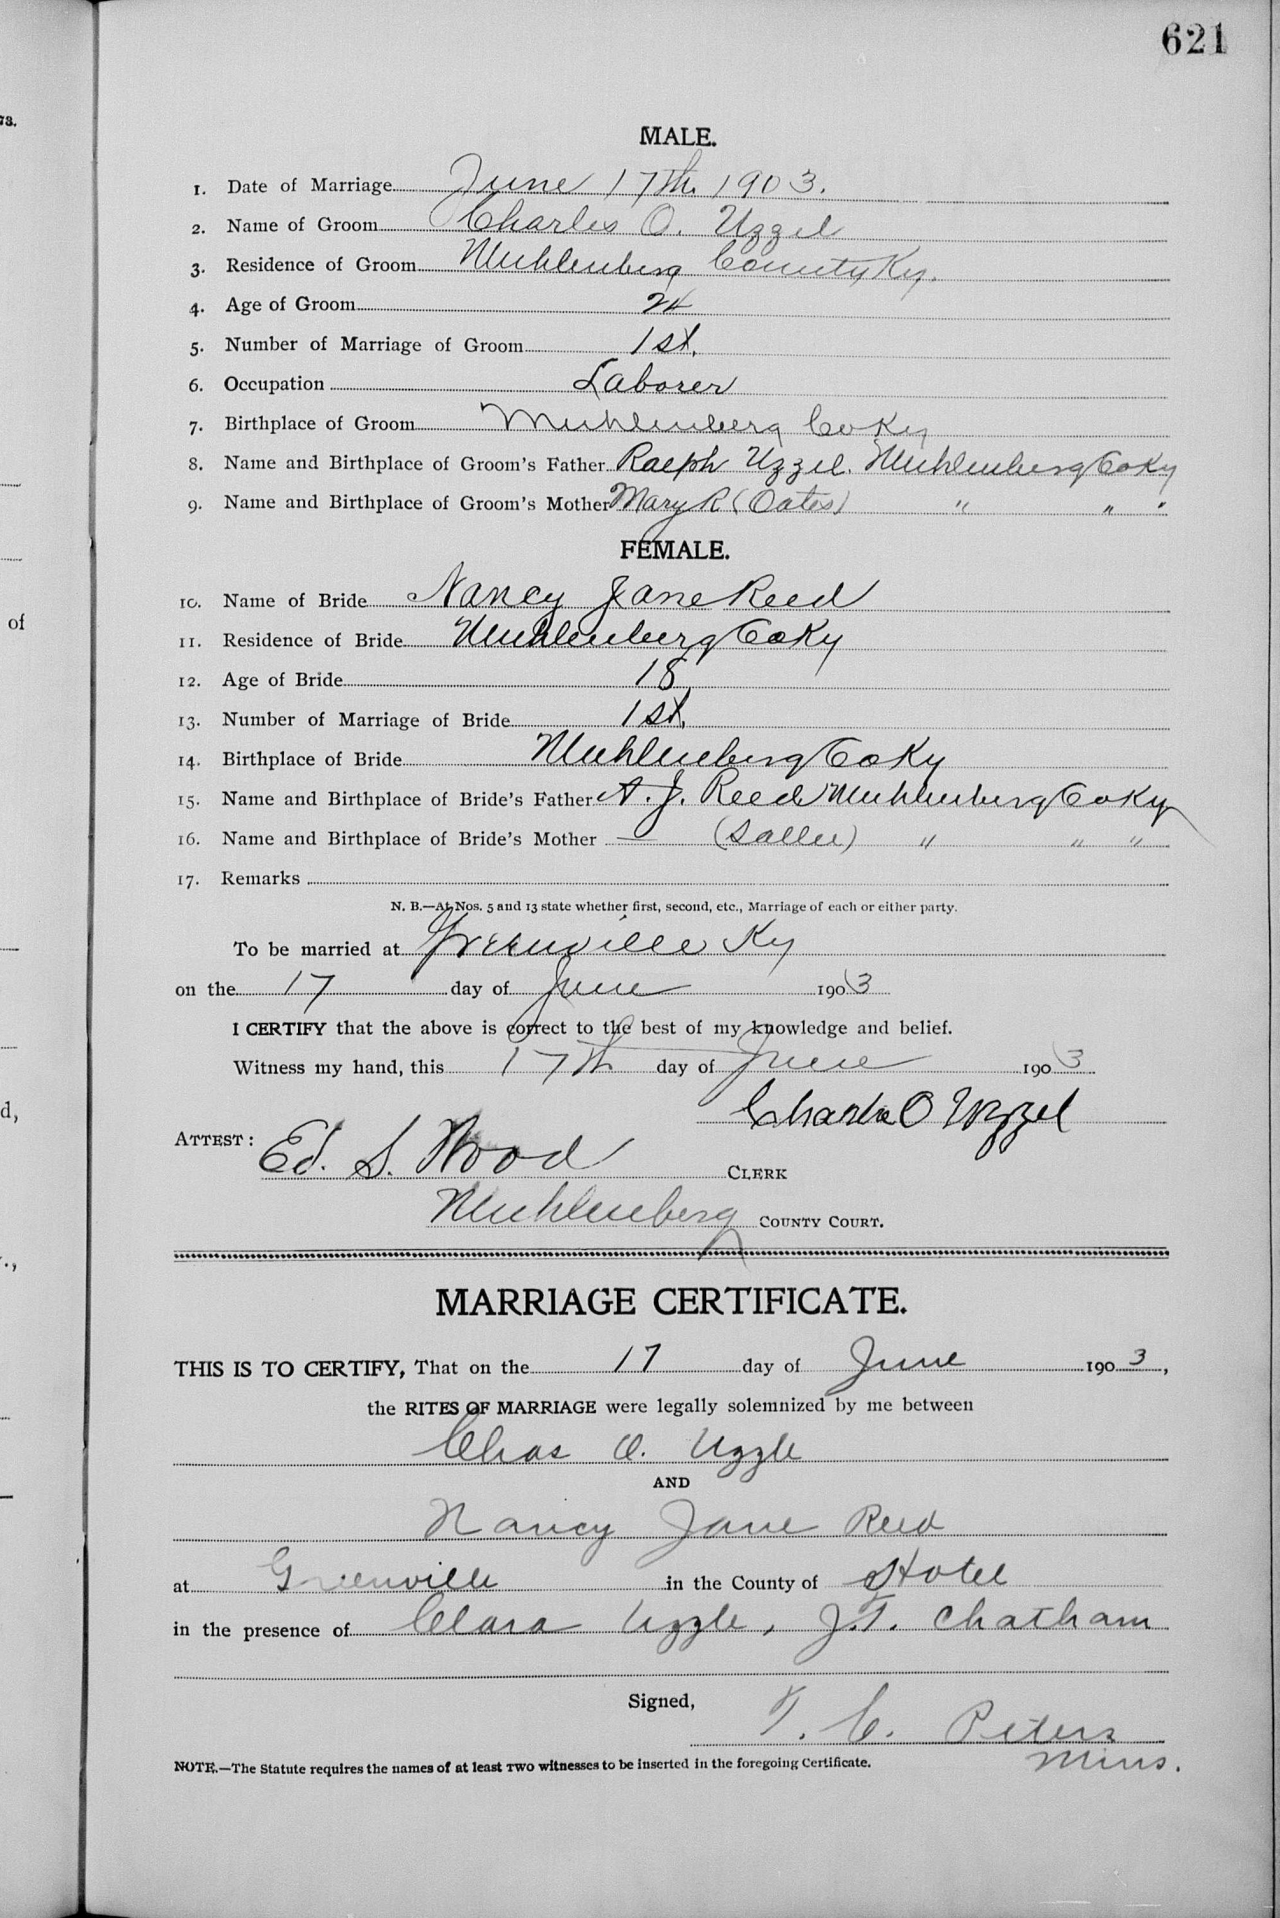 621
73.
MALE.
1. Date of Marriage June 17th. 1903.
2. Name of Groom Charles O. Uzzel
3. Residence of Groom Muhlenberg County Ky.
4. Age of Groom 24
5. Number of Marriage of Groom 1st.
6. Occupation Laborer
7. Birthplace of Groom Muhlenberg Co Ky
8. Name and Birthplace of Groom's Father Ralph Uzzel. Muhlenberg Co Ky
9. Name and Birthplace of Groom's Mother Mary R (Oates) " " "
FEMALE.
10. Name of Bride Nancy Jane Reed
of
11. Residence of Bride Muhlenberg Co Ky
12. Age of Bride 18
13. Number of Marriage of Bride 1st.
14. Birthplace of Bride Muhlenberg Co Ky
15. Name and Birthplace of Bride's Father A. J. Reed Muhlenberg Co Ky
16. Name and Birthplace of Bride's Mother — (Sallee) " " "
17. Remarks
N. B.—At Nos. 5 and 13 state whether first, second, etc., Marriage of each or either party.
To be married at Greenville Ky
on the 17 day of June 1903
I CERTIFY that the above is correct to the best of my knowledge and belief.
Witness my hand, this 17th day of June 1903
d,
Charles O Uzzel
ATTEST: Ed. S. Wood CLERK
Muhlenberg COUNTY COURT.
MARRIAGE CERTIFICATE.
THIS IS TO CERTIFY, That on the 17 day of June 1903,
the RITES OF MARRIAGE were legally solemnized by me between
Chas O. Uzzle
AND
Nancy Jane Reed
at Greenville in the County of Hotel
in the presence of Clara Uzzle, J.T. Chatham
Signed,
T. C. Peters
Mins.
NOTE.—The Statute requires the names of at least TWO witnesses to be inserted in the foregoing Certificate.